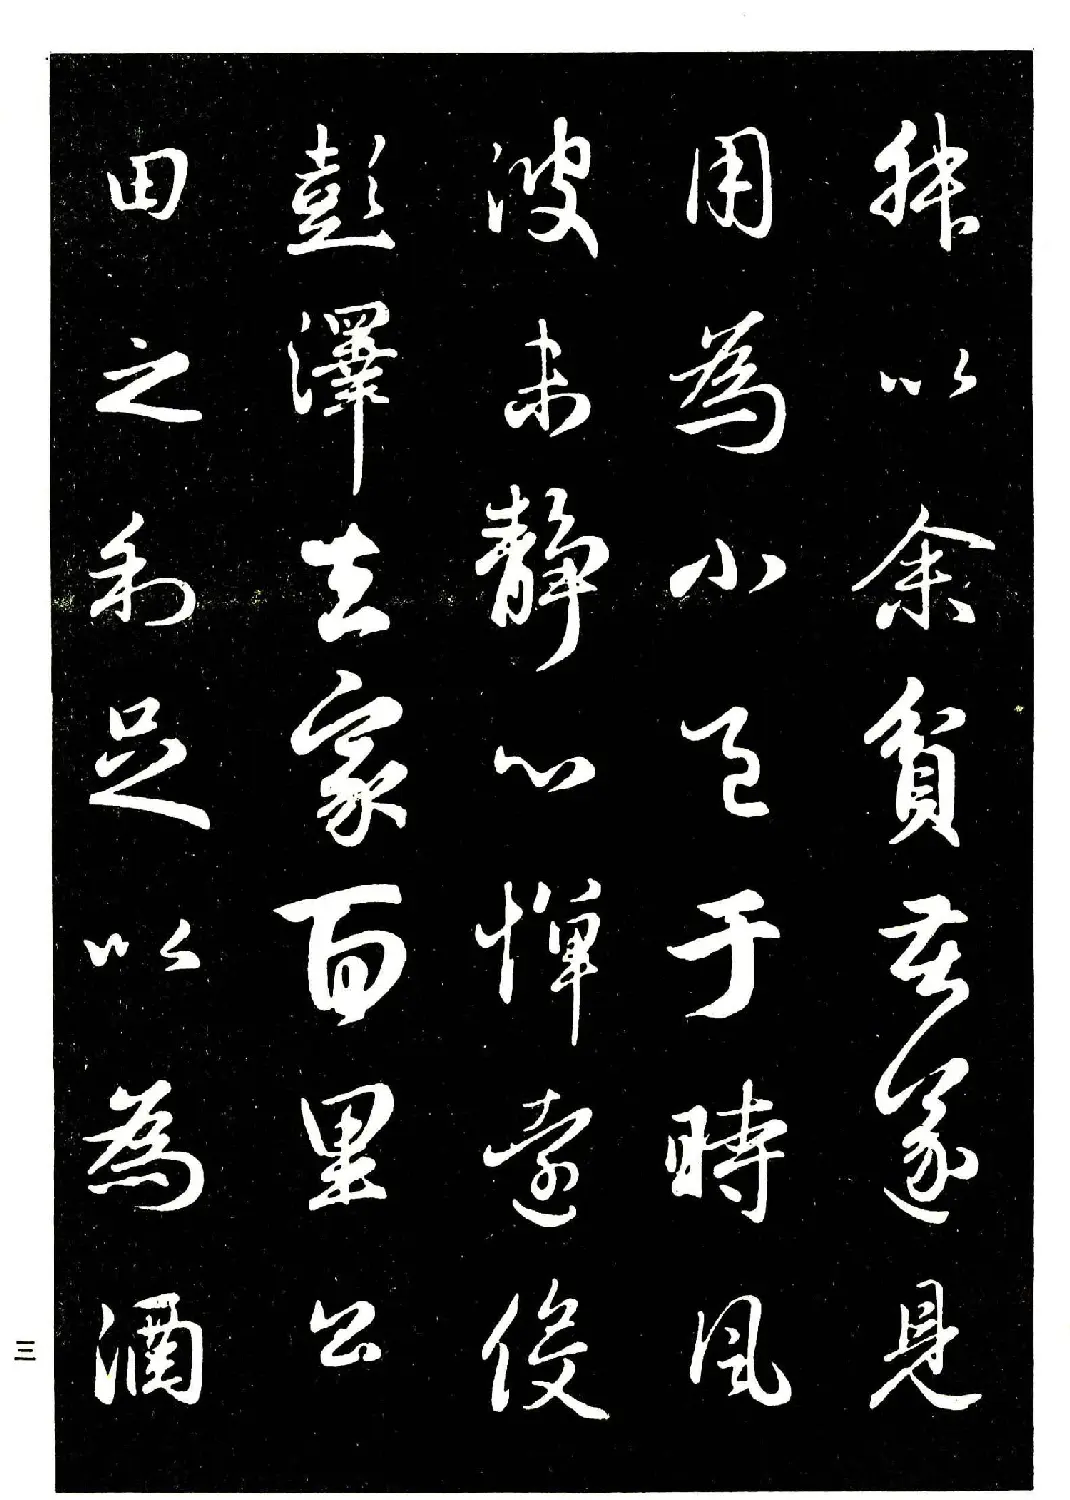 叔以余貧苦遂見
用為小邑于時風
波未靜心憚遠役
彭澤去家百里公
田之利足以為酒
三